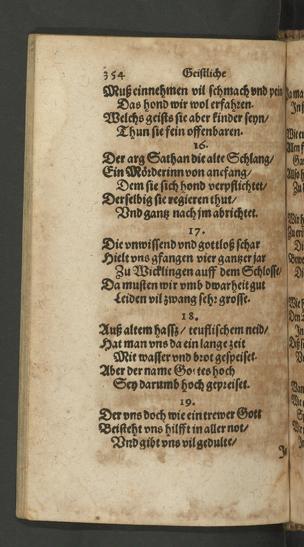 354 Geistliche
Muß einnehmen vil schmach vnd pein
Das hond wir wol erfahren.
Welchs geists sie aber kinder seyn/
Thun sie fein offenbaren.
16.
Der arg Sathan die alte Schlang/
Ein Mörderinn von anefang/
Dem sie sich hond verpflichtet/
Derselbig sie regieren thut/
Vnd gantz nach jm abrichtet.
17.
Die vnwissend vnd gottloß schar
Hielt vns gfangen vier gantzer jar
Zu Wicklingen auff dem Schlosse/
Da musten wir vmb dwarheit gut
Leiden vil zwang sehr grosse.
18.
Auß altem hassz/ teuflischem neid/
Hat man vns da ein lange zeit
Mit wasser vnd brot gespeiset.
Aber der name Gottes hoch
Sey darumb hoch gepreiset.
19.
Der vns doch wie ein trewer Gott
Beisteht vns hilfft in aller not/
Vnd gibt vns vil gedulte/